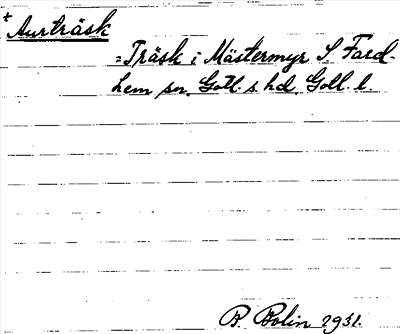 + Aurträsk
=Träsk i Mästermyr S Fard-
hem sn. Gotl. s. hd. Gotl. l.
B. Bolin 1931.